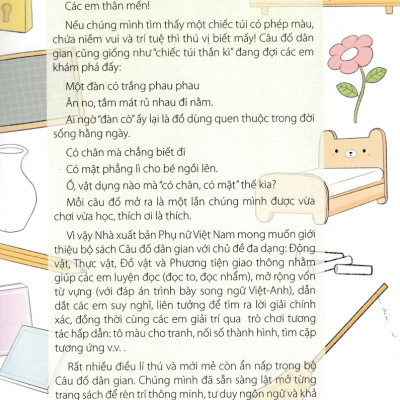 Các em thân mến!
Nếu chúng mình tìm thấy một chiếc túi có phép màu,
chứa niềm vui và trí tuệ thì thú vị biết mấy! Câu đố dân
gian cũng giống như “chiếc túi thần kì” đang đợi các em
khám phá đấy:
Một đàn cò trắng phau phau
Ăn no, tắm mát rủ nhau đi nằm.
Ai ngờ “đàn cò” ấy lại là đồ dùng quen thuộc trong đời
sống hằng ngày.
Có chân mà chẳng biết đi
Có mặt phẳng lì cho bé ngồi lên.
Ồ, vật dụng nào mà “có chân, có mặt” thế kia?
Mỗi câu đố mở ra là một lần chúng mình được vừa
chơi vừa học, thích ơi là thích.
Vì vậy Nhà xuất bản Phụ nữ Việt Nam mong muốn giới
thiệu bộ sách Câu đố dân gian với chủ đề đa dạng: Động
vật, Thực vật, Đồ vật và Phương tiện giao thông nhằm
giúp các em luyện đọc (đọc to, đọc nhẩm), mở rộng vốn
từ vựng (với đáp án trình bày song ngữ Việt-Anh), dẫn
dắt các em suy nghĩ, liên tưởng để tìm ra lời giải chính
xác, đồng thời cùng các em giải trí qua trò chơi tương
tác hấp dẫn: tô màu cho tranh, nối số thành hình, tìm cặp
tương ứng v.v. .
Rất nhiều điều lí thú và mới mẻ còn ẩn nấp trong bộ
Câu đố dân gian. Chúng mình đã sẵn sàng lật mở từng
trang sách để rèn trí thông minh, tư duy ngôn ngữ và khả